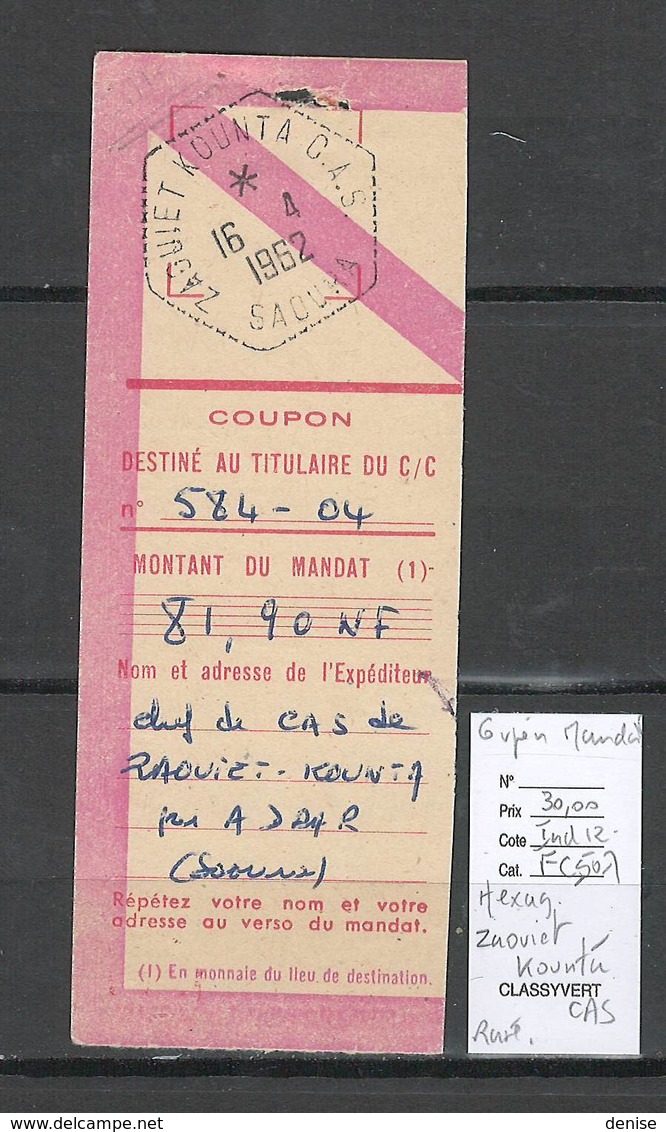 ZAOUIET KOUNTA C.A.S.
*
16 4
1962
SAOURA
COUPON
DESTINÉ AU TITULAIRE DU C/C
n° 584-04
MONTANT DU MANDAT (1)-
81,90 NF
Nom et adresse de l'Expéditeur
chef de CAS de
ZAOUIET-KOUNTA
par ADRAR
(Saoura)
Répétez votre nom et votre
adresse au verso du mandat.
(1) En monnaie du lieu de destination.
Mandat
N°
Prix 30,00
Cote Ind 12-
Cat.
Hexag.
Zaouiet
Kounta
CLASSYVERT
CAS
Rare.
delcampe.net
denise